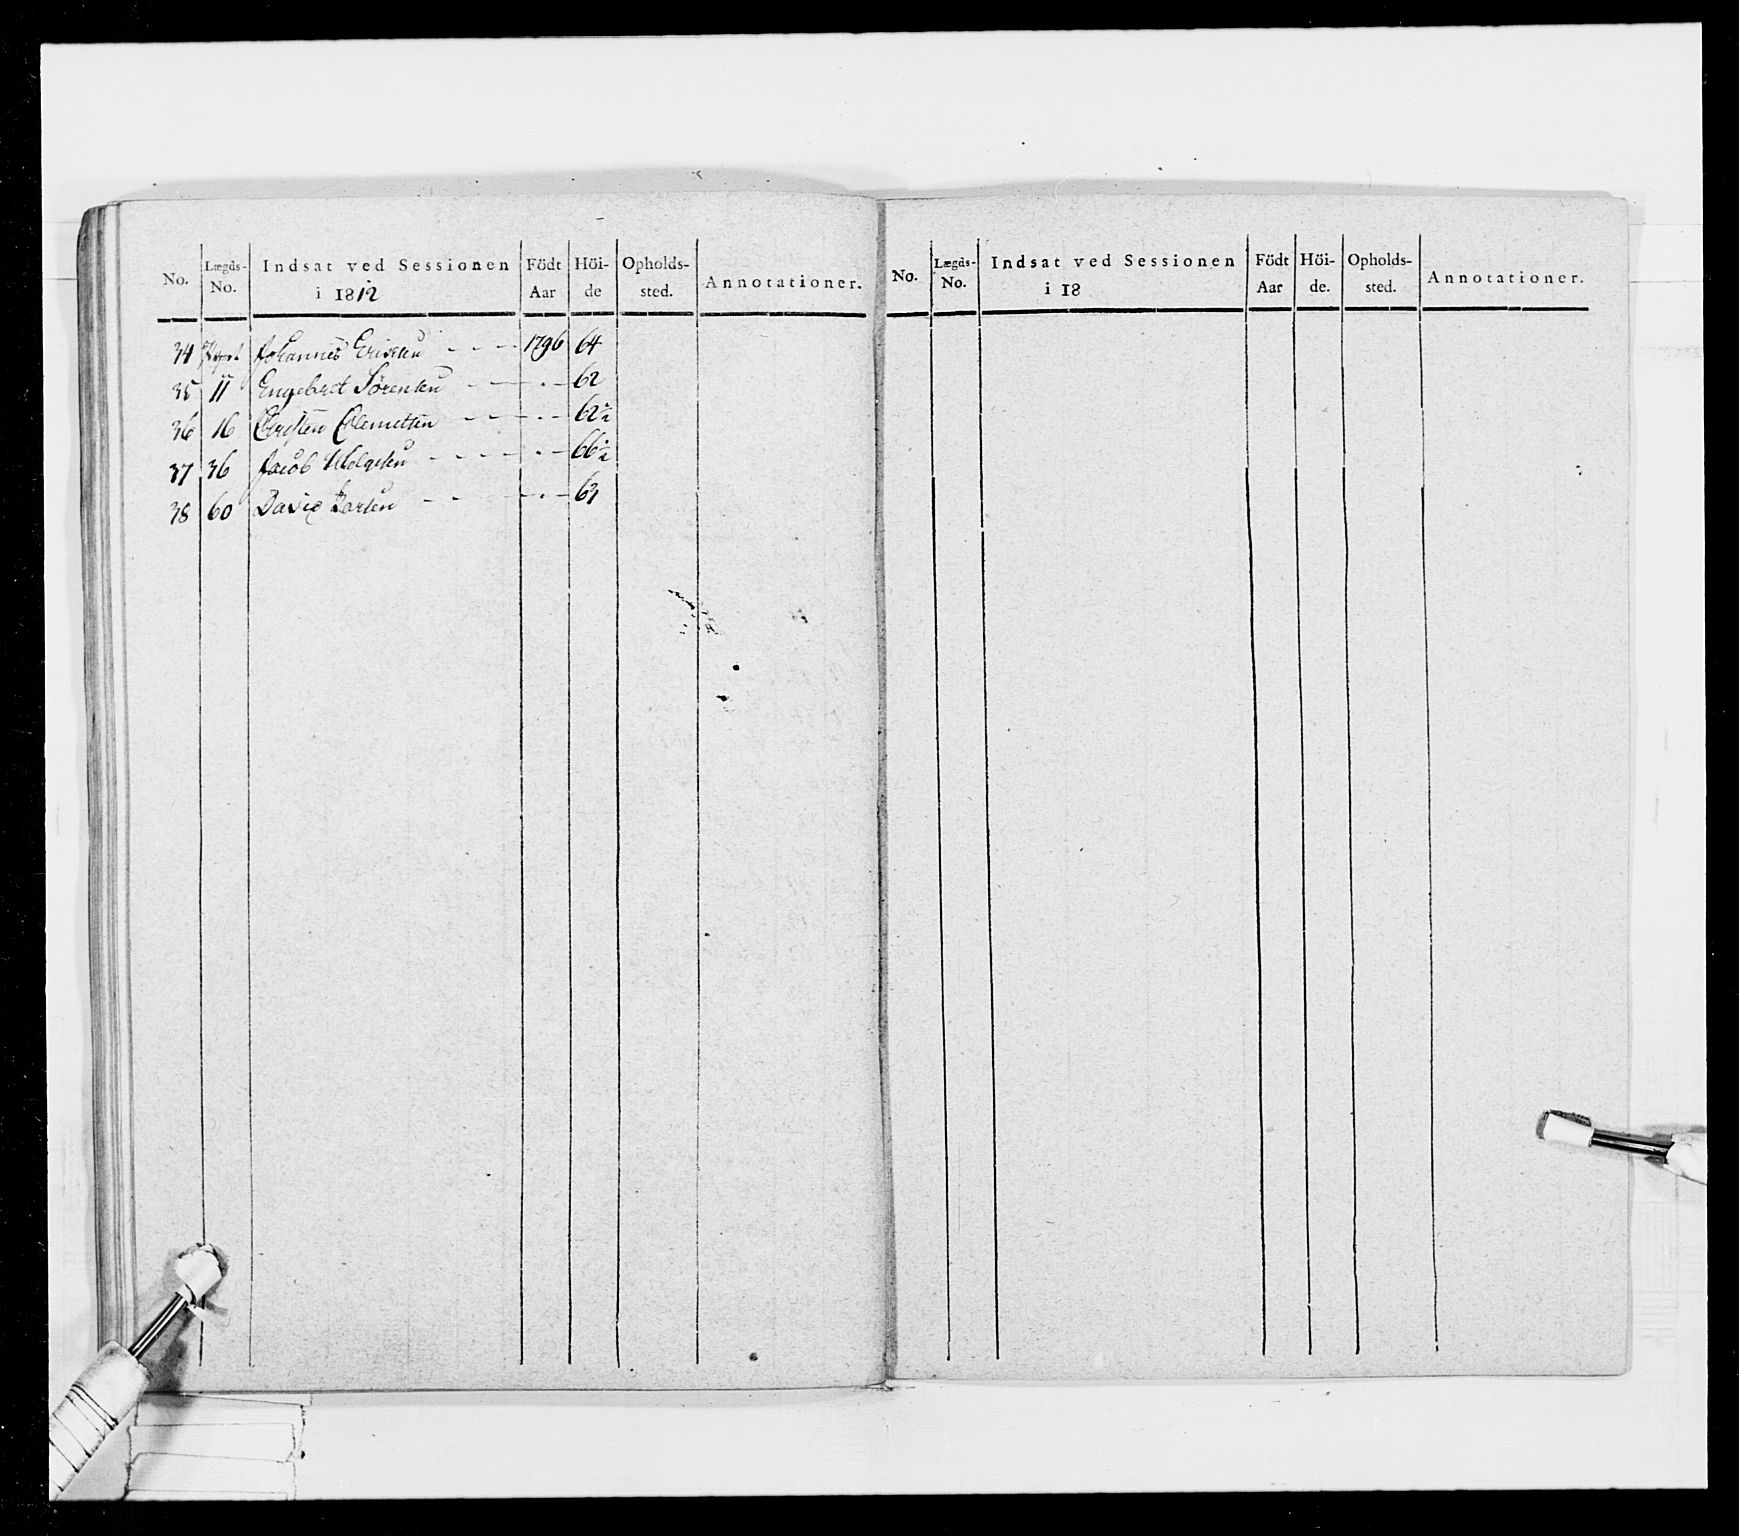 No. Lægds-No. Indsat ved Sessionen i 1812 Födt Aar Höi-de Opholds-sted. Annotationer.
34 Johannes Ericsen - - - 1796 64
35 11 Engebret Sørensen - - - 62
36 16 Christen Clemetsen - - - 62½
37 36 Jacob Helgesen - - - 66½
38 60 David Larsen - - - 63
No. Lægds-No. Indsat ved Sessionen i 18 Födt Aar Höi-de. Opholds-sted. Annotationer.